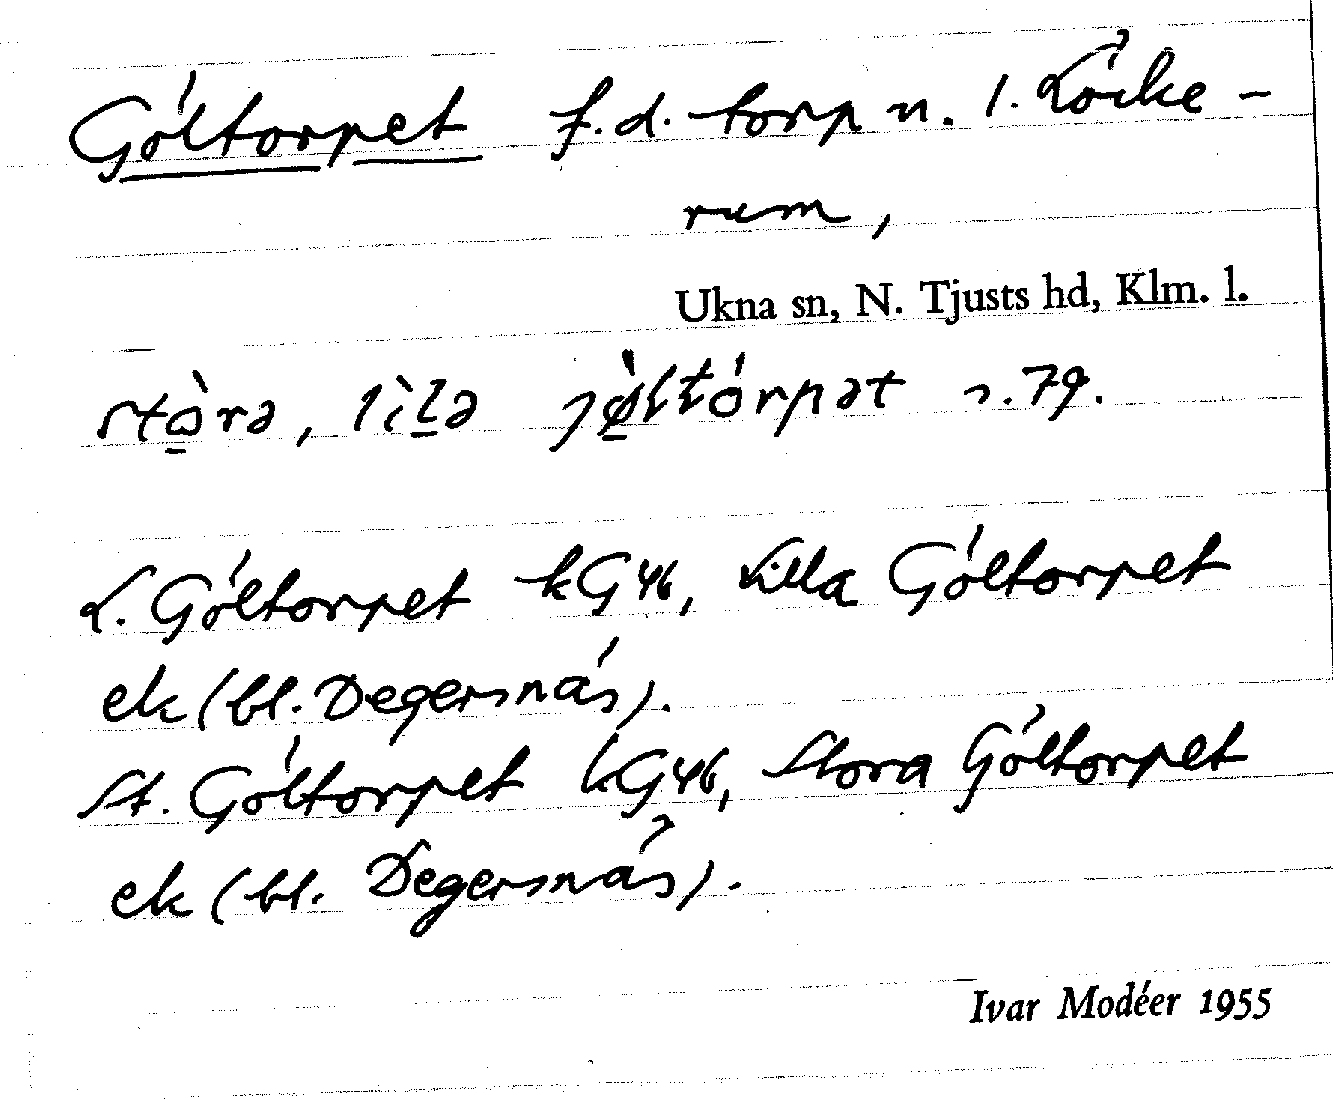 Göltorpet f.d. torp n. 1. Löcke-
rum,
Ukna sn, N. Tjusts hd, Klm. l.
stòrə, lìlə jø̀ltórpət s. 79.
L. Göltorpet kG46, Lilla Göltorpet
ek (bl. Degersnäs).
St. Göltorpet kG46, Stora Göltorpet
ek (bl. Degersnäs).
Ivar Modéer 1955